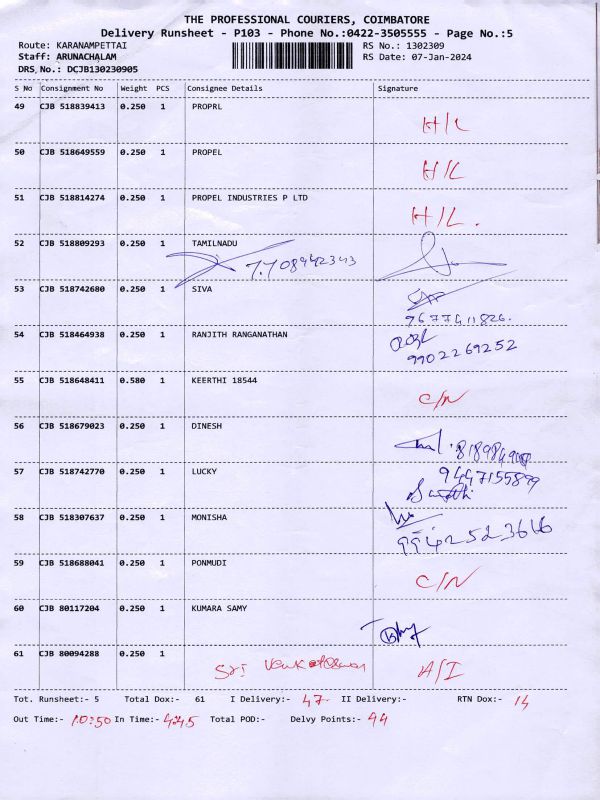 THE PROFESSIONAL COURIERS, COIMBATORE
Delivery Runsheet - P103 - Phone No.:0422-3505555 - Page No.:5
Route: KARANAMPETTAI RS No.: 1302309
Staff: ARUNACHALAM RS Date: 07-Jan-2024
DRS No.: DCJB130230905
S No Consignment No Weight PCS Consignee Details Signature
49 CJB 518839413 0.250 1 PROPRL
H/L
50 CJB 518649559 0.250 1 PROPEL
H/L
51 CJB 518814274 0.250 1 PROPEL INDUSTRIES P LTD
H/L.
52 CJB 518809293 0.250 1 TAMILNADU
53 CJB 518742680 0.250 1 SIVA
9677411826.
54 CJB 518464938 0.250 1 RANJITH RANGANATHAN
9902269252
55 CJB 518648411 0.580 1 KEERTHI 18544
C/N
56 CJB 518679023 0.250 1 DINESH
57 CJB 518742770 0.250 1 LUCKY
58 CJB 518307637 0.250 1 MONISHA
59 CJB 518688041 0.250 1 PONMUDI
C/N
60 CJB 80117204 0.250 1 KUMARA SAMY
61 CJB 80094288 0.250 1
Sri A/I
Tot. Runsheet:- 5 Total Dox:- 61 I Delivery:- 47 II Delivery:- RTN Dox:- 14
Out Time:- 10:50 In Time:- 4:45 Total POD:- Delvy Points:- 44